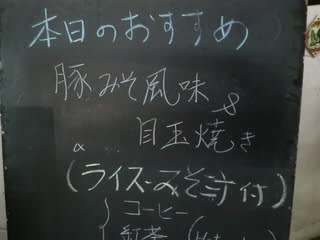 本日のおすすめ
豚みそ風味
&
目玉焼き
(ライス・みそ汁付)
コーヒー
紅茶